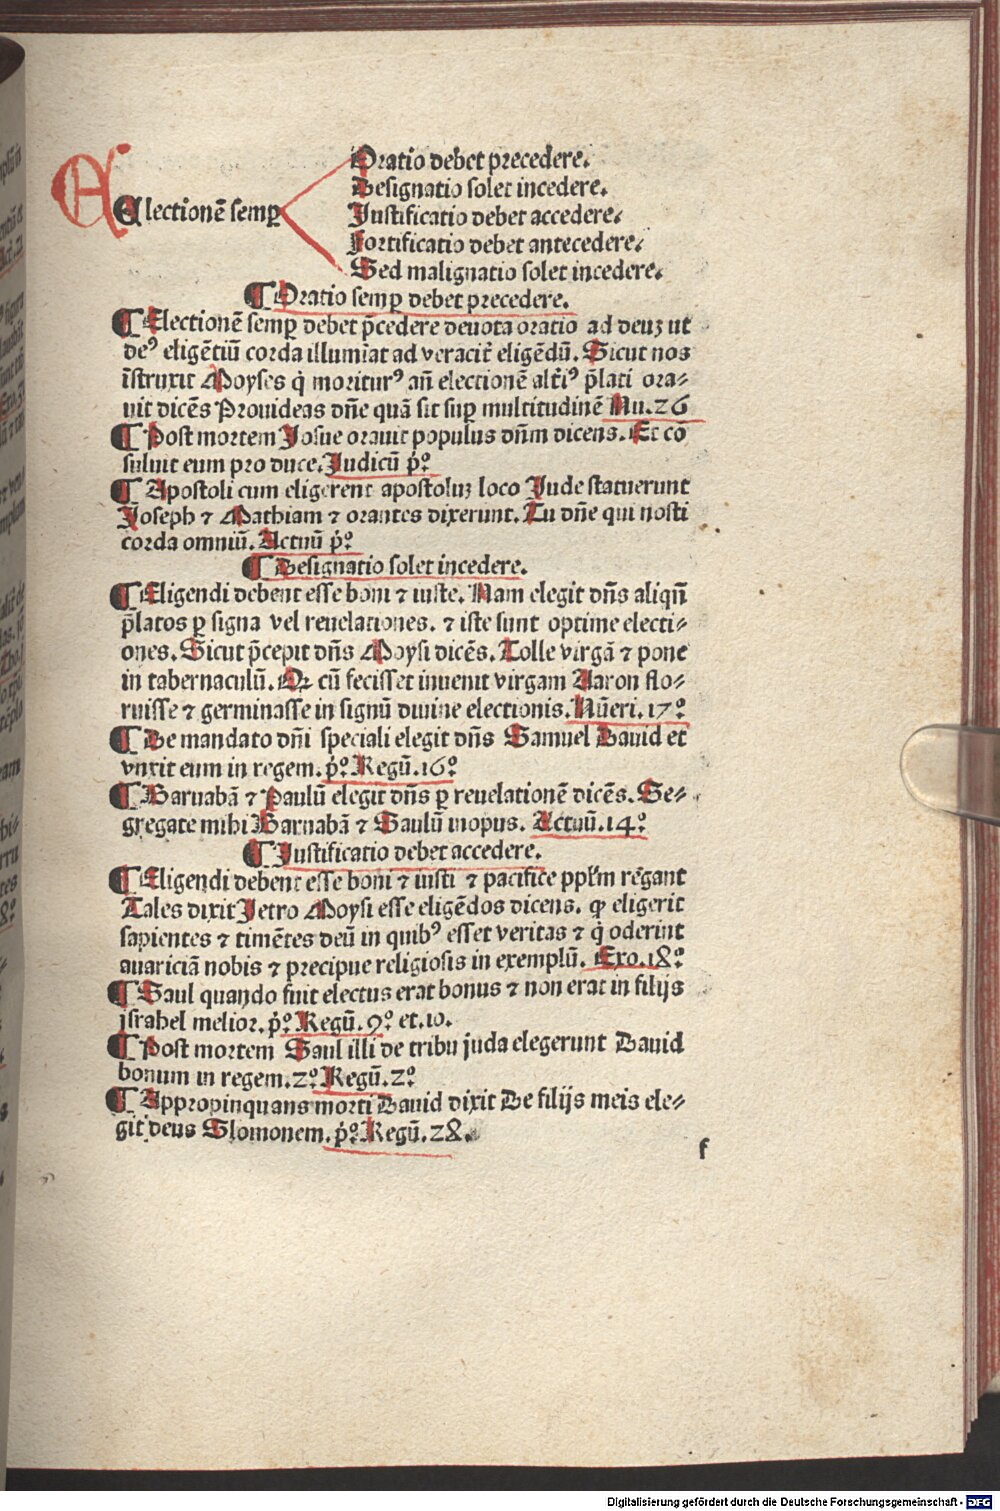 Oratio debet precedere.
Designatio solet incedere.
Electionē semꝑ
Justificatio debet accedere.
Fortificatio debet antecedere.
Sed malignatio solet incedere.
¶ Oratio semꝑ debet precedere.
¶ Electionē semꝑ debet p̄cedere deuota oratio ad deuꝫ ut
deꝰ eligētiū corda illumīat ad veracit̄ eligēdū. Sicut nos
īstruxit Moyses q̇ moriturꝰ añ electionē alt̄iꝰ p̄lati ora⸗
uit dicēs Prouideas dn̄e quā sit suꝑ multitudinē Nu.26
¶ Post mortem Josue orauit populus dn̄m dicens. Et cō
suluit eum pro duce. Judicū pͦ.
¶ Apostoli cum eligerent apostoluꝫ loco Jude statuerunt
Joseph ⁊ Mathiam ⁊ orantes dixerunt. Tu dn̄e qui nosti
corda omniū. Actuū pͦ.
¶ Designatio solet incedere.
¶ Eligendi debent esse boni ⁊ iuste. Nam elegit dn̄s aliqn̄
p̄latos ꝑ signa vel reuelationes. ⁊ iste sunt optime electi⸗
ones. Sicut p̄cepit dn̄s Moysi dicēs. Tolle virgā ⁊ pone
in tabernaculū. Qꝛ cū fecisset inuenit virgam Aaron flo⸗
ruisse ⁊ germinasse in signū diuine electionis. Nūeri.17ͦ.
¶ De mandato dn̄i speciali elegit dn̄s Samuel Dauid et
vnxit eum in regem. pͦ. Regū.16ͦ.
¶ Barnabā ⁊ Paulū elegit dn̄s ꝑ reuelationē dicēs. Se⸗
gregate mihi Barnabā ⁊ Saulū inopus. Actuū.14ͦ.
¶ Justificatio debet accedere.
¶ Eligendi debent esse boni ⁊ iusti ⁊ pacifice ppl'm rēgant
Tales dixit Jetro Moysi esse eligēdos dicens. ꝙ eligerit
sapientes ⁊ timētes deū in quibꝰ esset veritas ⁊ q̇ oderint
auariciā nobis ⁊ precipue religiosis in exemplū. Exo.18ͦ.
¶ Saul quando fuit electus erat bonus ⁊ non erat in filijs
israhel melior. pͦ. Regū.9ͦ. et.10.
¶ Post mortem Saul illi de tribu juda elegerunt Dauid
bonum in regem.2ͦ. Regū.2ͦ.
¶ Appropinquans morti Dauid dixit De filijs meis ele⸗
git deus Slomonem. pͦ. Regū.28.
f
Digitalisierung gefördert durch die Deutsche Forschungsgemeinschaft - DFG